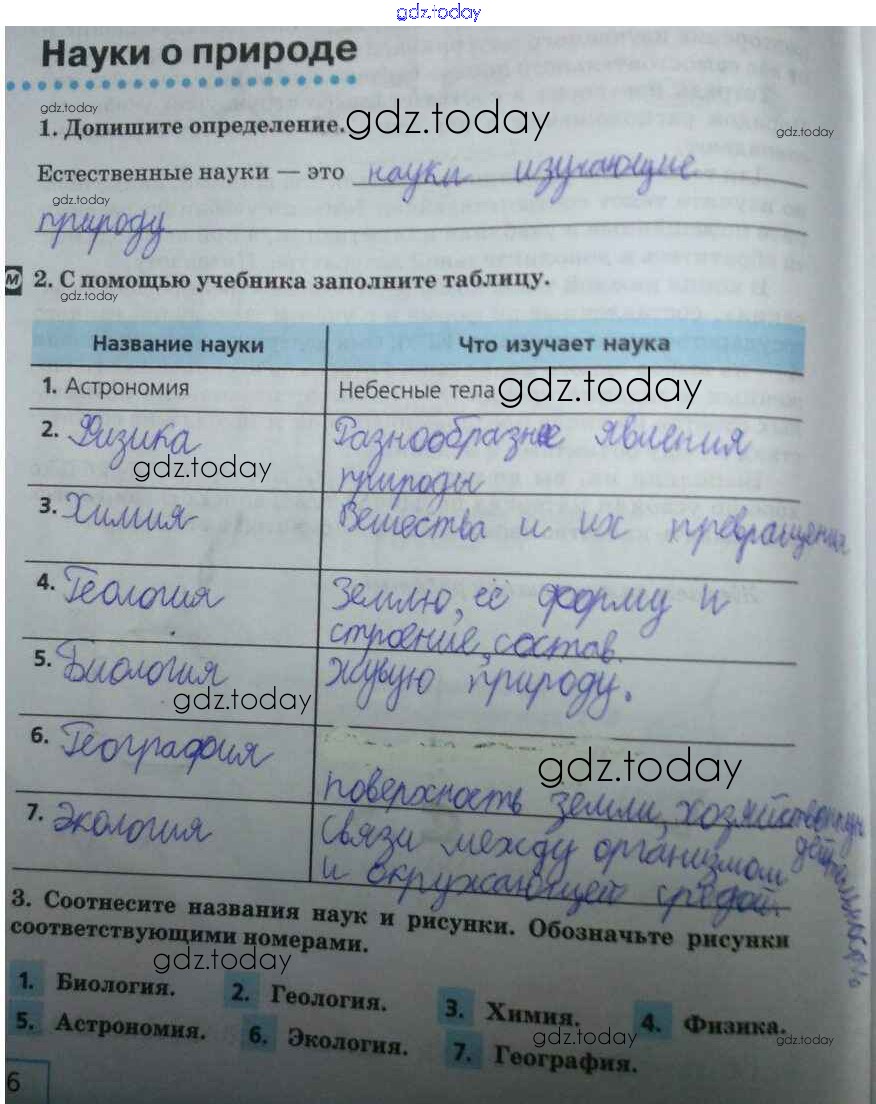 gdz.today
Науки о природе
gdz.today
1. Допишите определение. gdz.today
gdz.today
Естественные науки — это науки изучающие
gdz.today
природу
М 2. С помощью учебника заполните таблицу.
gdz.today
Название науки Что изучает наука
1. Астрономия Небесные тела gdz.today
2. Физика Разнообразные явления
gdz.today природы
3. Химия Вещества и их превращения
4. Геология Землю, её форму и
строение, состав.
5. Биология живую природу.
gdz.today
6. География
gdz.today
поверхность земли, хозяйственную
деятельность
7. Экология связи между организмом
и окружающей средой.
3. Соотнесите названия наук и рисунки. Обозначьте рисунки
соответствующими номерами.
gdz.today
1. Биология. 2. Геология. 3. Химия. 4. Физика.
5. Астрономия. 6. Экология. 7. География.
gdz.today gdz.today
6